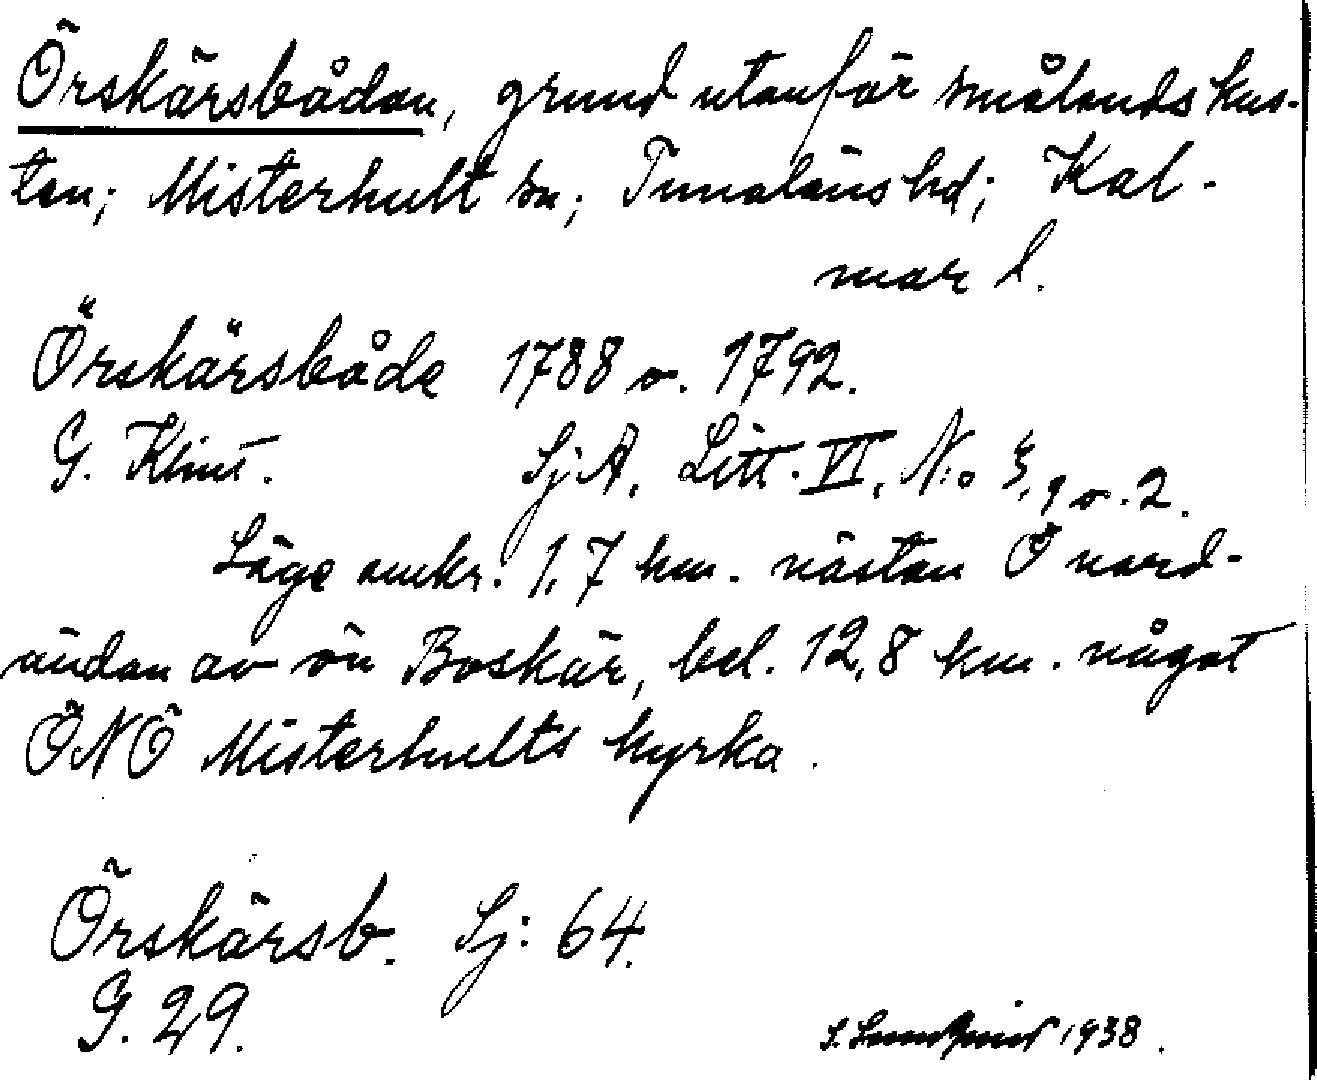 Örskärsbådan, grund utanför smålandskus-
ten; Misterhult sn; Tunaläns hd; Kal-
mar l.
Örskärsbåde 1788 o. 1792.
G. Klint. SjA, Litt. VI, N:o 3, 1 o. 2.
Läge omkr. 1,7 km. nästan Ö nord-
ändan av ön Boskär, bel. 12,8 km. något
ÖNÖ Misterhults kyrka.
Örskärsb. Sj: 64.
G. 29.
S. Lundqvist 1938.